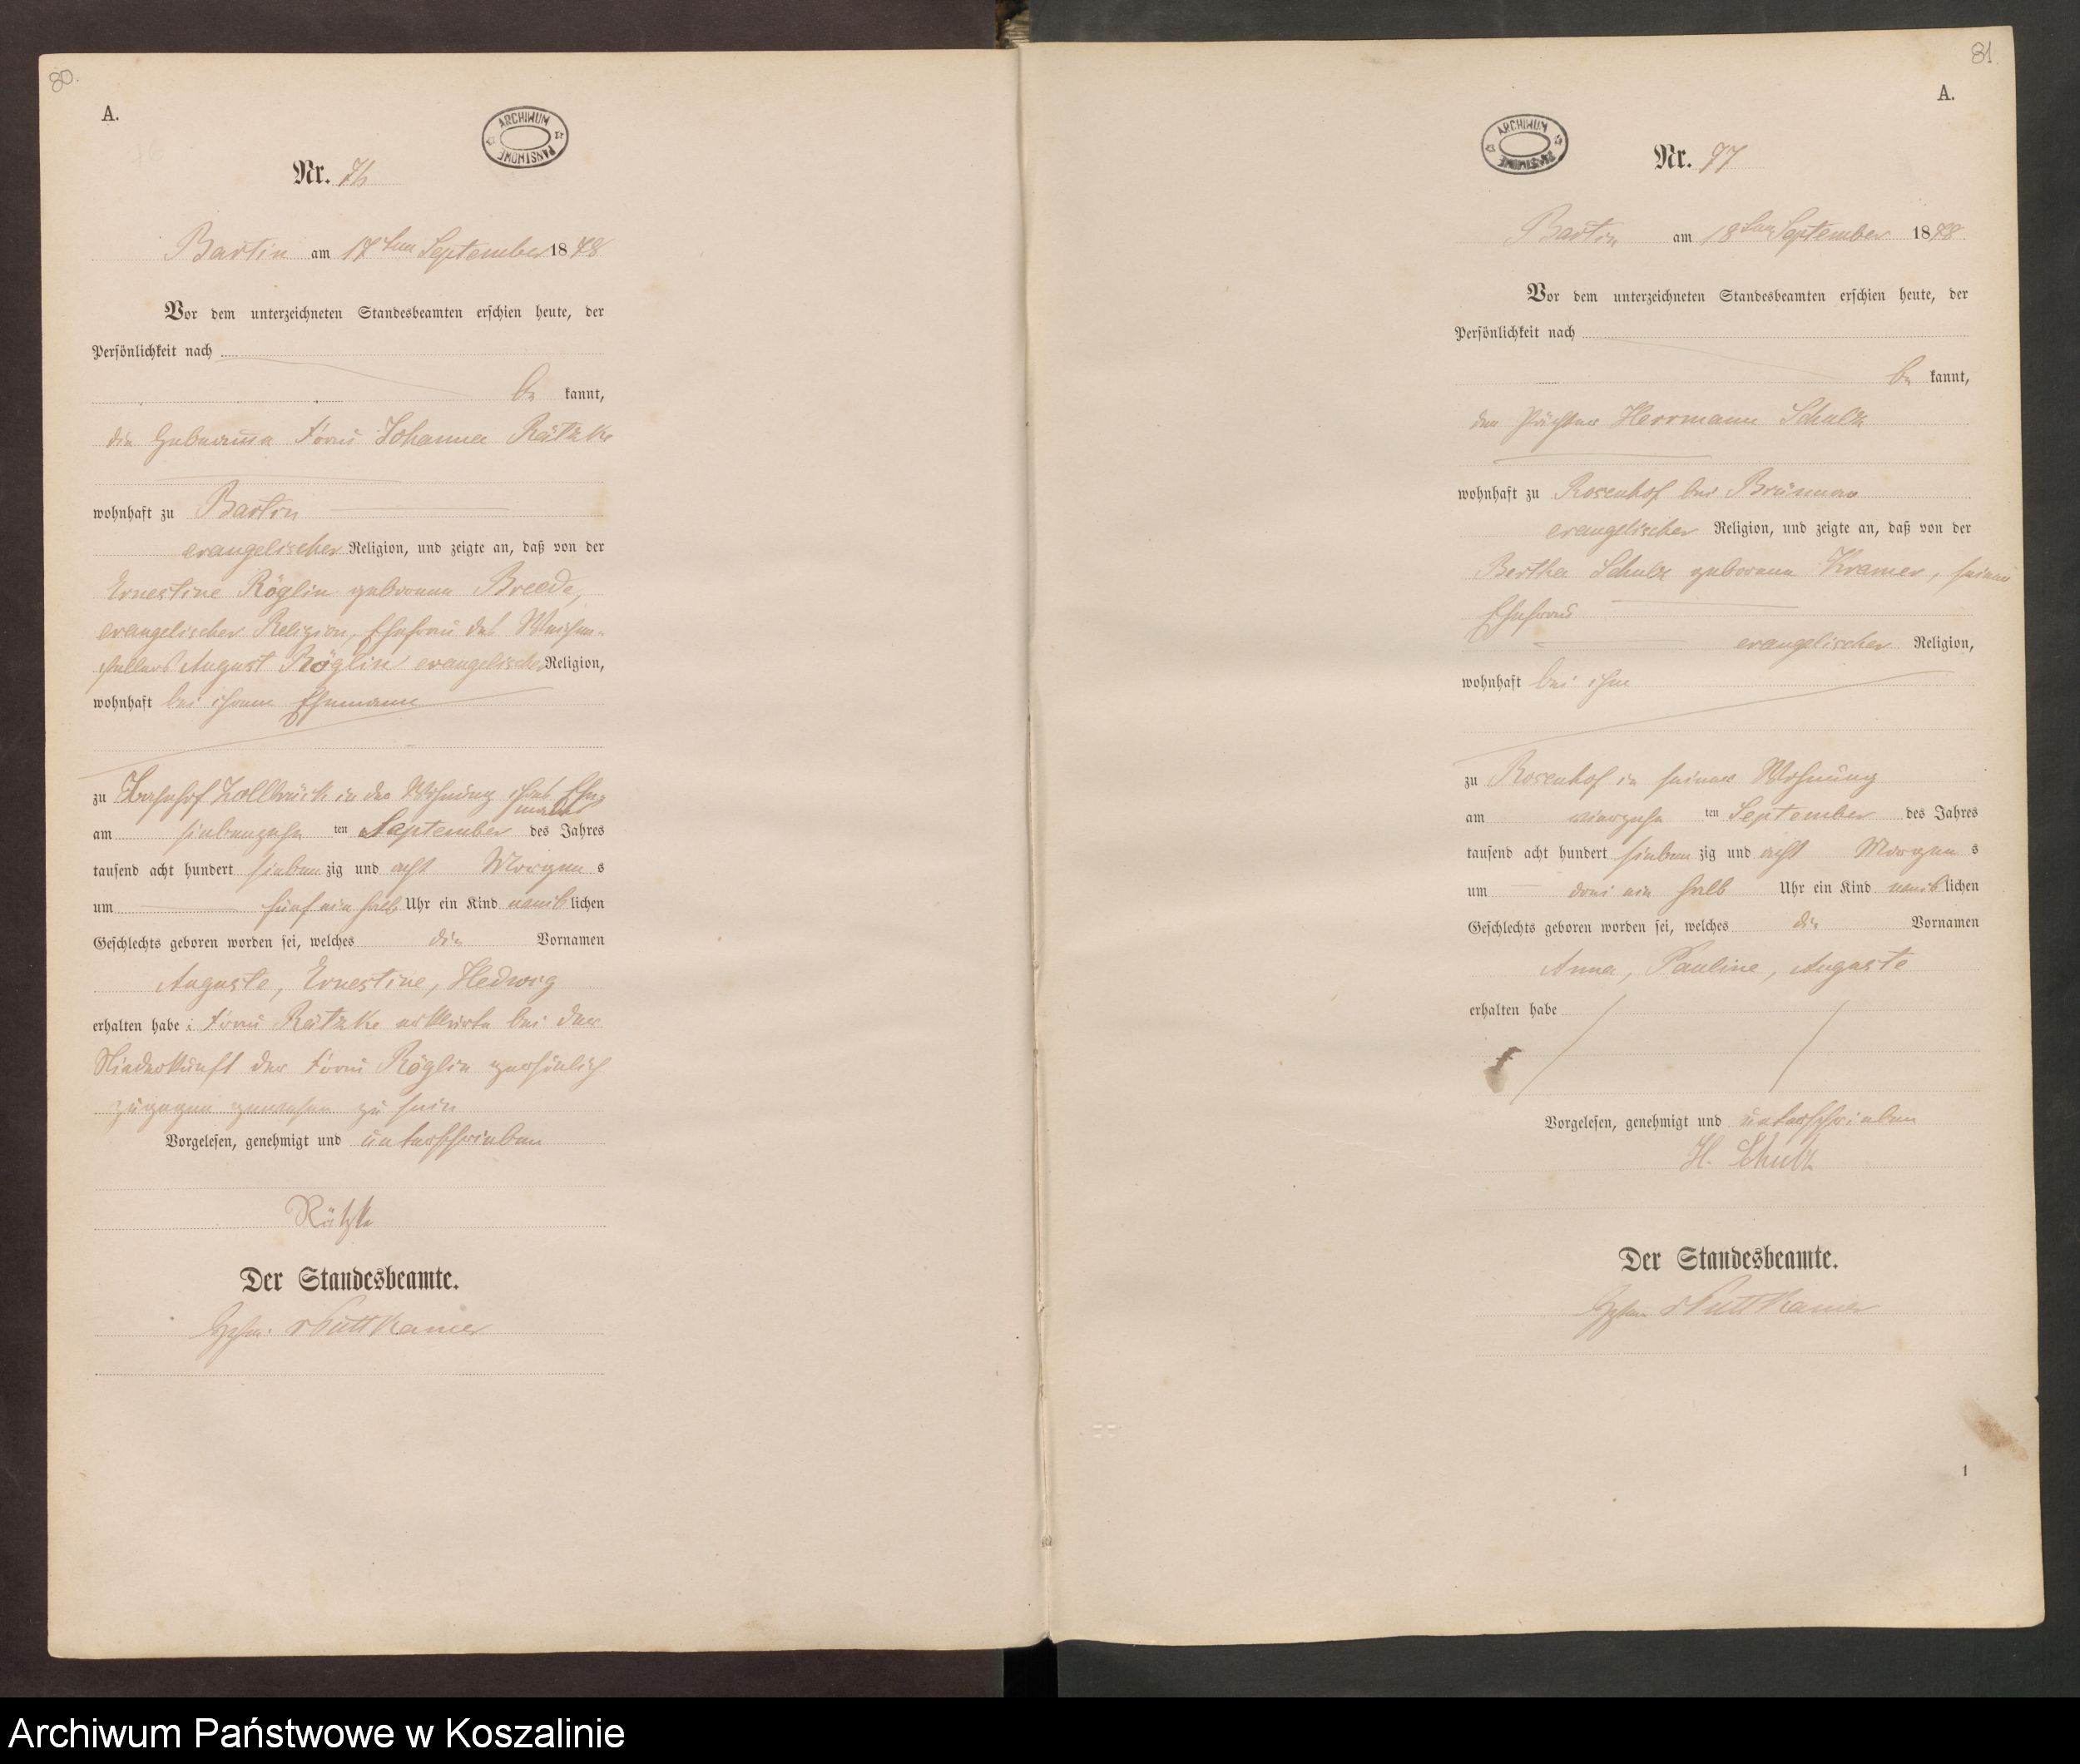 80.
A.
ARCHIWUM PAŃSTWOWE
Nr. 76
Bartin am 17ten September 1878
Vor dem unterzeichneten Standesbeamten erschien heute, der
Persönlichkeit nach
be kannt,
die Hebamme Frau Johanna Rätzke
wohnhaft zu Bartin
evangelischer Religion, und zeigte an, daß von der
Ernestine Röglin geborene Breede,
evangelischer Religion, Ehefrau des Weichen-
stellers August Röglin evangelischer Religion,
wohnhaft bei ihrem Ehemanne
zu Bahnhof Zollbrück in der Wohnung ihres Ehe-
mannes
am siebenzehn ten September des Jahres
tausend acht hundert sieben zig und acht Morgen s
um fünf ein halb Uhr ein Kind weib lichen
Geschlechts geboren worden sei, welches die Vornamen
Auguste, Ernestine, Hedwig
erhalten habe: Frau Rätzke erklärte bei der
Niederkunft der Frau Röglin persönlich
zugegen gewesen zu sein
Vorgelesen, genehmigt und unterschrieben
Rätzke
Der Standesbeamte.
v Puttkamer
81.
A.
ARCHIWUM PAŃSTWOWE
Nr. 77
Bartin am 18ten September 1878
Vor dem unterzeichneten Standesbeamten erschien heute, der
Persönlichkeit nach
be kannt,
der Pächter Herrmann Schulz
wohnhaft zu Rosenhof bei Brünnow
evangelischer Religion, und zeigte an, daß von der
Bertha Schulz geborene Kramer, seiner
Ehefrau
evangelischer Religion,
wohnhaft bei ihm
zu Rosenhof in seiner Wohnung
am vierzehn ten September des Jahres
tausend acht hundert sieben zig und acht Morgen s
um drei ein halb Uhr ein Kind weib lichen
Geschlechts geboren worden sei, welches die Vornamen
Anna, Pauline, Auguste
erhalten habe
Vorgelesen, genehmigt und unterschrieben
H. Schulz
Der Standesbeamte.
v Puttkamer
1
Archiwum Państwowe w Koszalinie